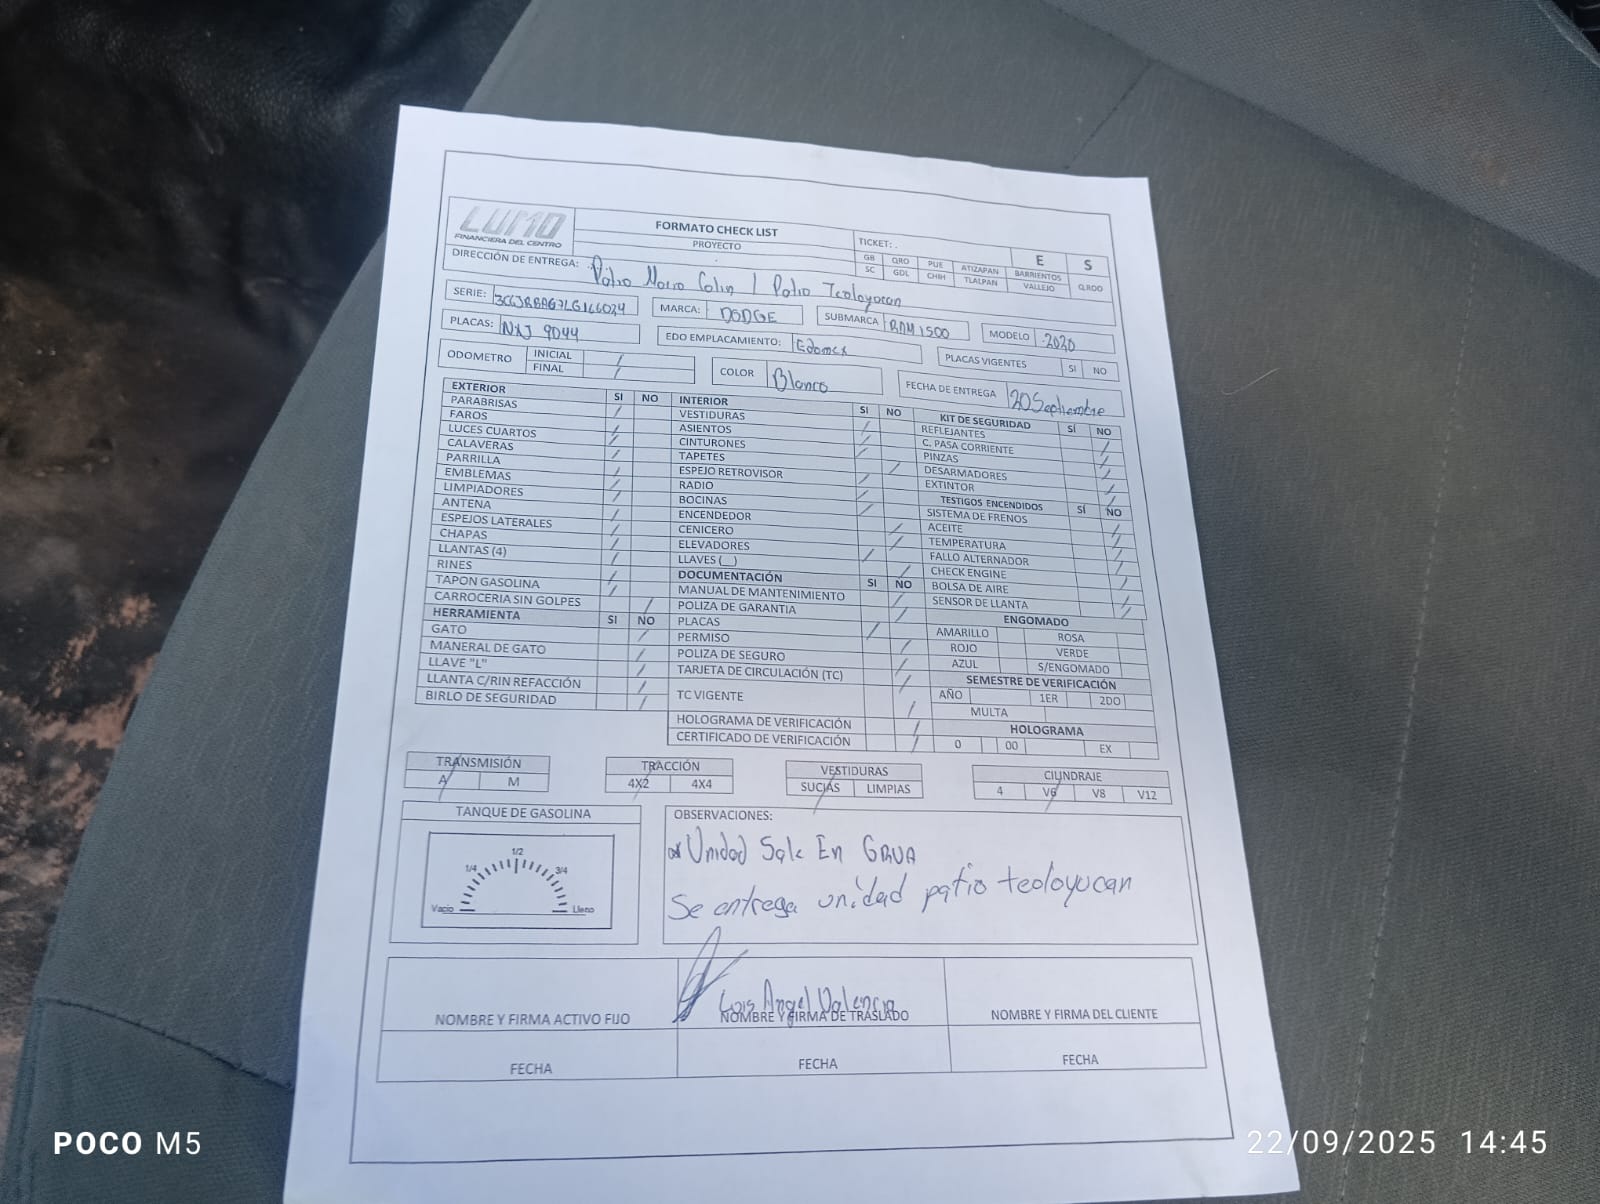 LUMO
FINANCIERA DEL CENTRO
FORMATO CHECK LIST
PROYECTO
TICKET: .
GB QRO PUE ATIZAPAN BARRIENTOS E S
SC GDL CHIH TLALPAN VALLEJO Q.ROO
DIRECCIÓN DE ENTREGA: Patio Mario Colin / Patio Teoloyucan
SERIE: MARCA: DODGE SUBMARCA RAM 1500 MODELO 2020
PLACAS: NXJ 9044 EDO EMPLACAMIENTO: Edomex PLACAS VIGENTES SI NO
ODOMETRO INICIAL / COLOR Blanco FECHA DE ENTREGA 20 Septiembre
FINAL /
EXTERIOR SI NO
PARABRISAS /
FAROS
LUCES CUARTOS /
CALAVERAS /
PARRILLA /
EMBLEMAS /
LIMPIADORES /
ANTENA
ESPEJOS LATERALES /
CHAPAS /
LLANTAS (4) /
RINES
TAPON GASOLINA /
CARROCERIA SIN GOLPES /
HERRAMIENTA SI NO
GATO /
MANERAL DE GATO /
LLAVE "L"
LLANTA C/RIN REFACCIÓN /
BIRLO DE SEGURIDAD /
INTERIOR SI NO
VESTIDURAS /
ASIENTOS /
CINTURONES /
TAPETES /
ESPEJO RETROVISOR /
RADIO /
BOCINAS /
ENCENDEDOR /
CENICERO /
ELEVADORES /
LLAVES (__) /
DOCUMENTACIÓN SI NO
MANUAL DE MANTENIMIENTO /
POLIZA DE GARANTIA /
PLACAS /
PERMISO /
POLIZA DE SEGURO /
TARJETA DE CIRCULACIÓN (TC) /
TC VIGENTE /
HOLOGRAMA DE VERIFICACIÓN /
CERTIFICADO DE VERIFICACIÓN /
KIT DE SEGURIDAD SÍ NO
REFLEJANTES /
C. PASA CORRIENTE /
PINZAS /
DESARMADORES /
EXTINTOR /
TESTIGOS ENCENDIDOS SÍ NO
SISTEMA DE FRENOS /
ACEITE /
TEMPERATURA /
FALLO ALTERNADOR /
CHECK ENGINE /
BOLSA DE AIRE /
SENSOR DE LLANTA /
ENGOMADO
AMARILLO ROSA
ROJO VERDE
AZUL S/ENGOMADO
SEMESTRE DE VERIFICACIÓN
AÑO 1ER 2DO
MULTA
HOLOGRAMA
0 00 EX
TRANSMISIÓN TRACCIÓN VESTIDURAS CILINDRAJE
A M 4X2 4X4 SUCIAS LIMPIAS 4 V6 V8 V12
TANQUE DE GASOLINA
Vacio 1/4 1/2 3/4 Lleno
OBSERVACIONES:
Unidad Sale En GRUA
Se entrega unidad patio teoloyucan
Luis Angel Valencia
NOMBRE Y FIRMA ACTIVO FIJO NOMBRE Y FIRMA DE TRASLADO NOMBRE Y FIRMA DEL CLIENTE
FECHA FECHA FECHA
POCO M5
22/09/2025 14:45